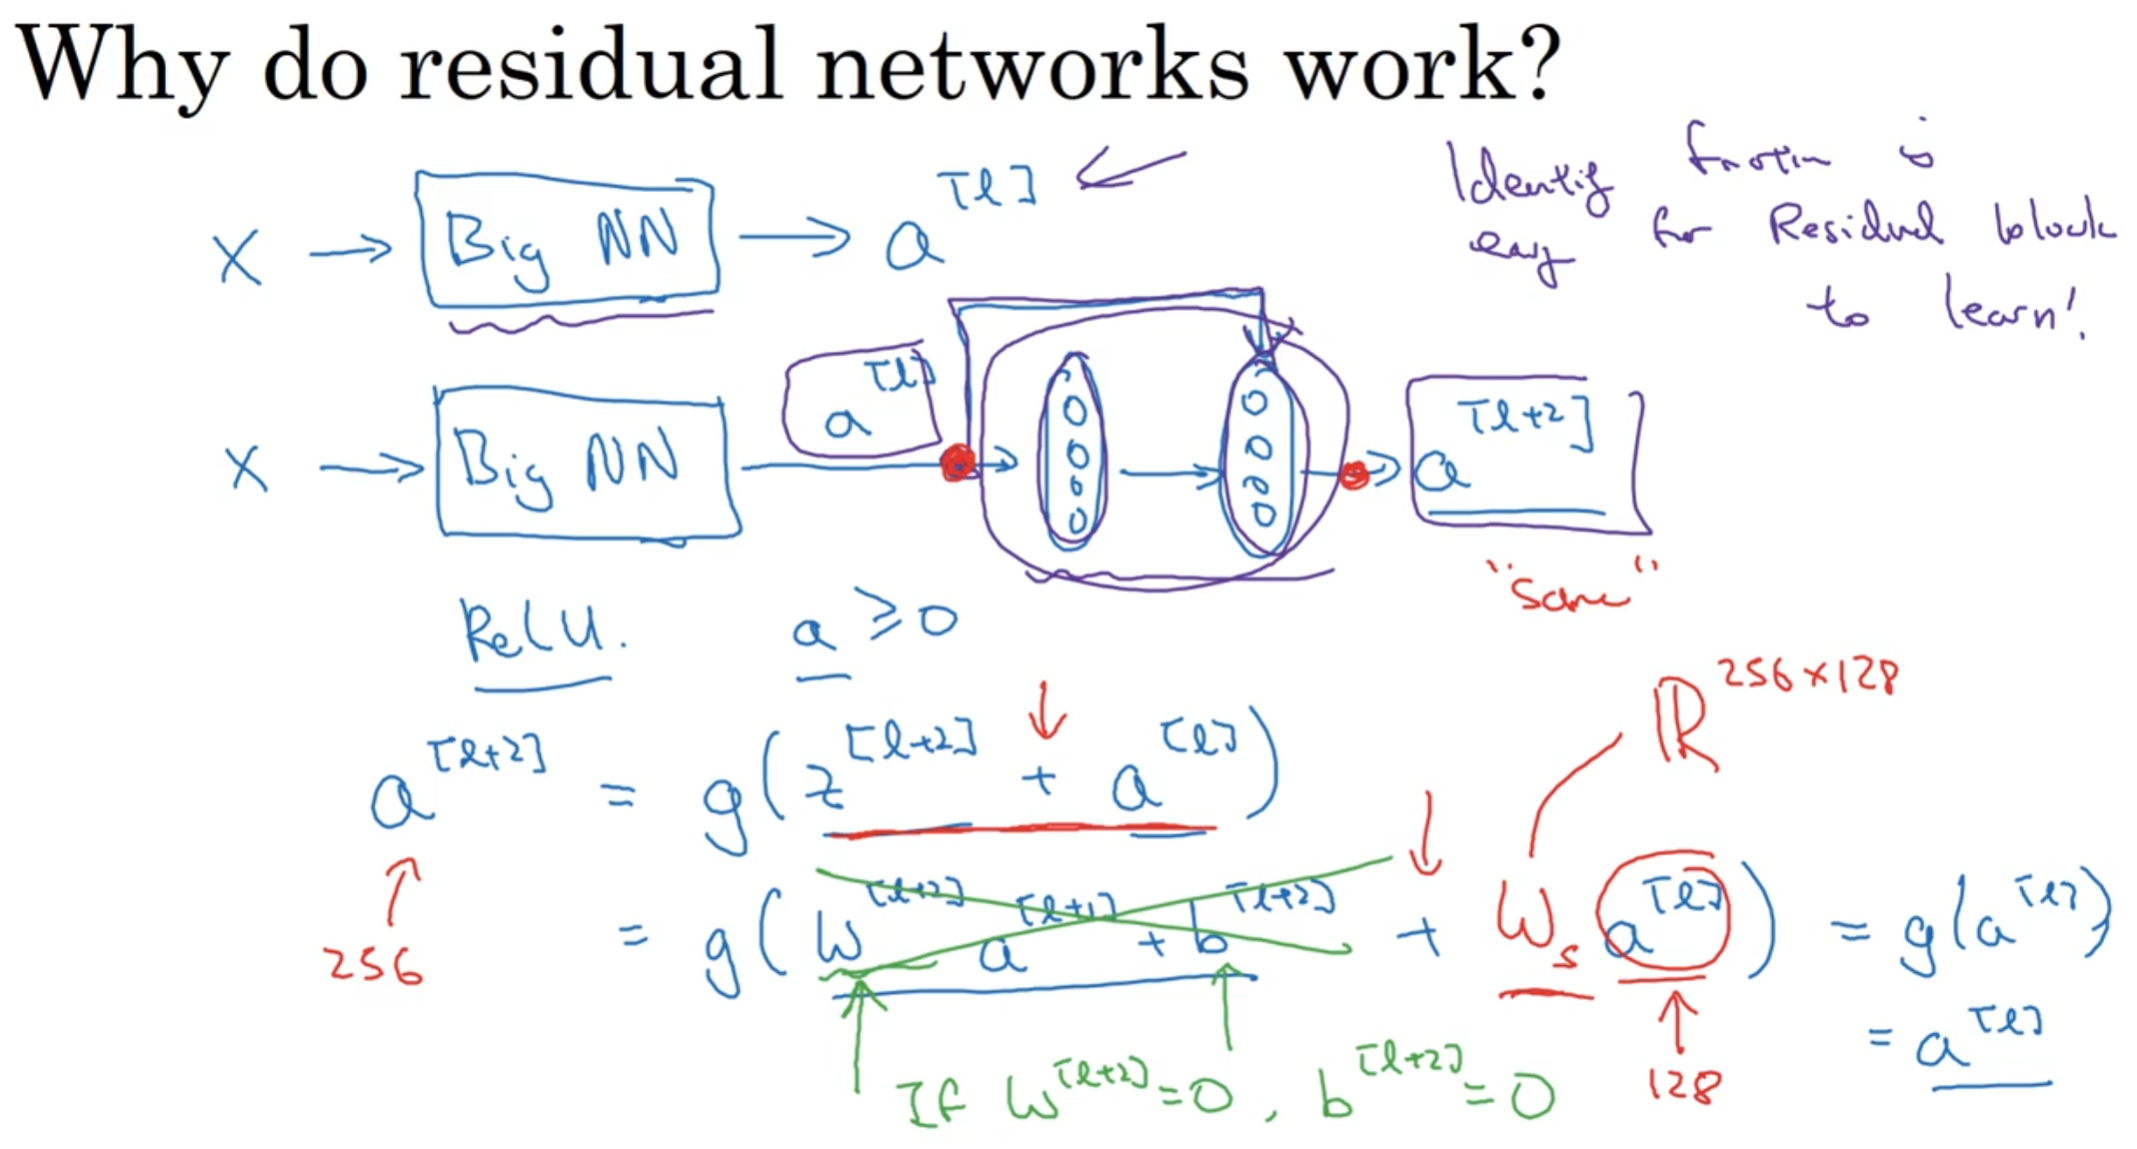 Why do residual networks work?
X → Big NN → a^[l] ←
Identity function is
easy for Residual block
to learn!
X → Big NN → a^[l] → → a^[l+2]
"same"
ReLU. a ≥ 0
ℝ^256×128
a^[l+2] = g(z^[l+2] + a^[l])
256
= g(W^[l+2] a^[l+1] + b^[l+2] + W_s a^[l]) = g(a^[l])
= a^[l]
128
If W^[l+2] = 0, b^[l+2] = 0